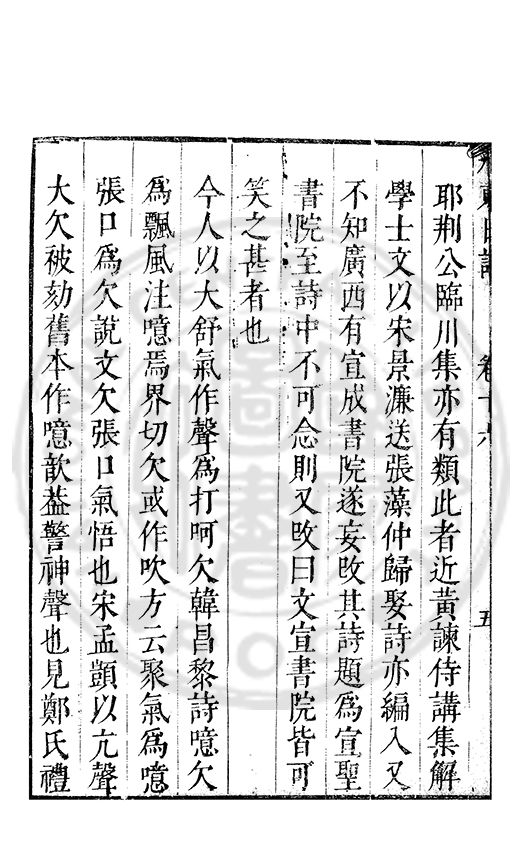 東日記 卷十六 五
耶荆公臨川集亦有類此者近黃諫侍講集解
學士文以宋景濂送張藻仲歸娶詩亦編入又
不知廣西有宣成書院遂妄攺其詩題爲宣聖
書院至詩中不可念則又攺曰文宣書院皆可
笑之甚者也
今人以大舒氣作聲爲打呵欠韓昌黎詩噫欠
爲飄風注噫焉界切欠或作吹方云聚氣爲噫
張口爲欠說文欠張口氣悟也宋孟顗以亢聲
大欠被劾舊本作噫歆葢警神聲也見鄭氏禮